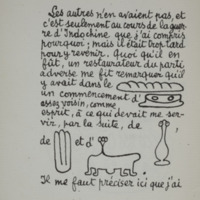 Les autres n'en avaient pas, et
c'est seulement au cours de la guer-
re d'Indochine que j'ai compris
pourquoi ; mais il était trop tard
pour y revenir. Quoi qu'il en
fût, un restaurateur du parti
adverse me fit remarquer qu'il
y avait dans le
un commencement d'
assez voisin, comme
esprit, à ce qui devait me ser-
vir, par la suite, de
de et d'
Il me faut préciser ici que j'ai